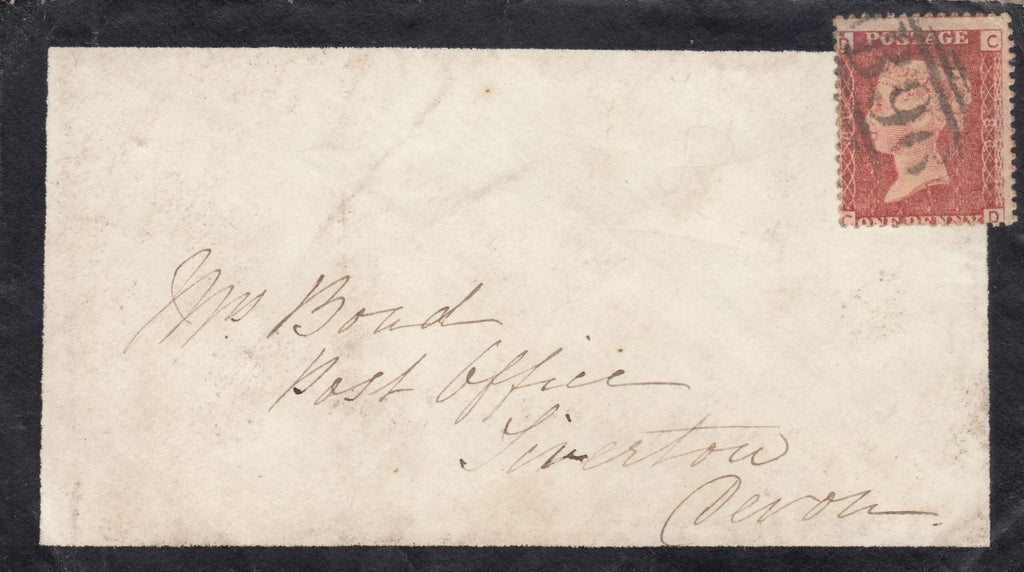 POSTAGE C
C ONE PENNY D
Mrs Bond
Post Office
Tiverton
Devon